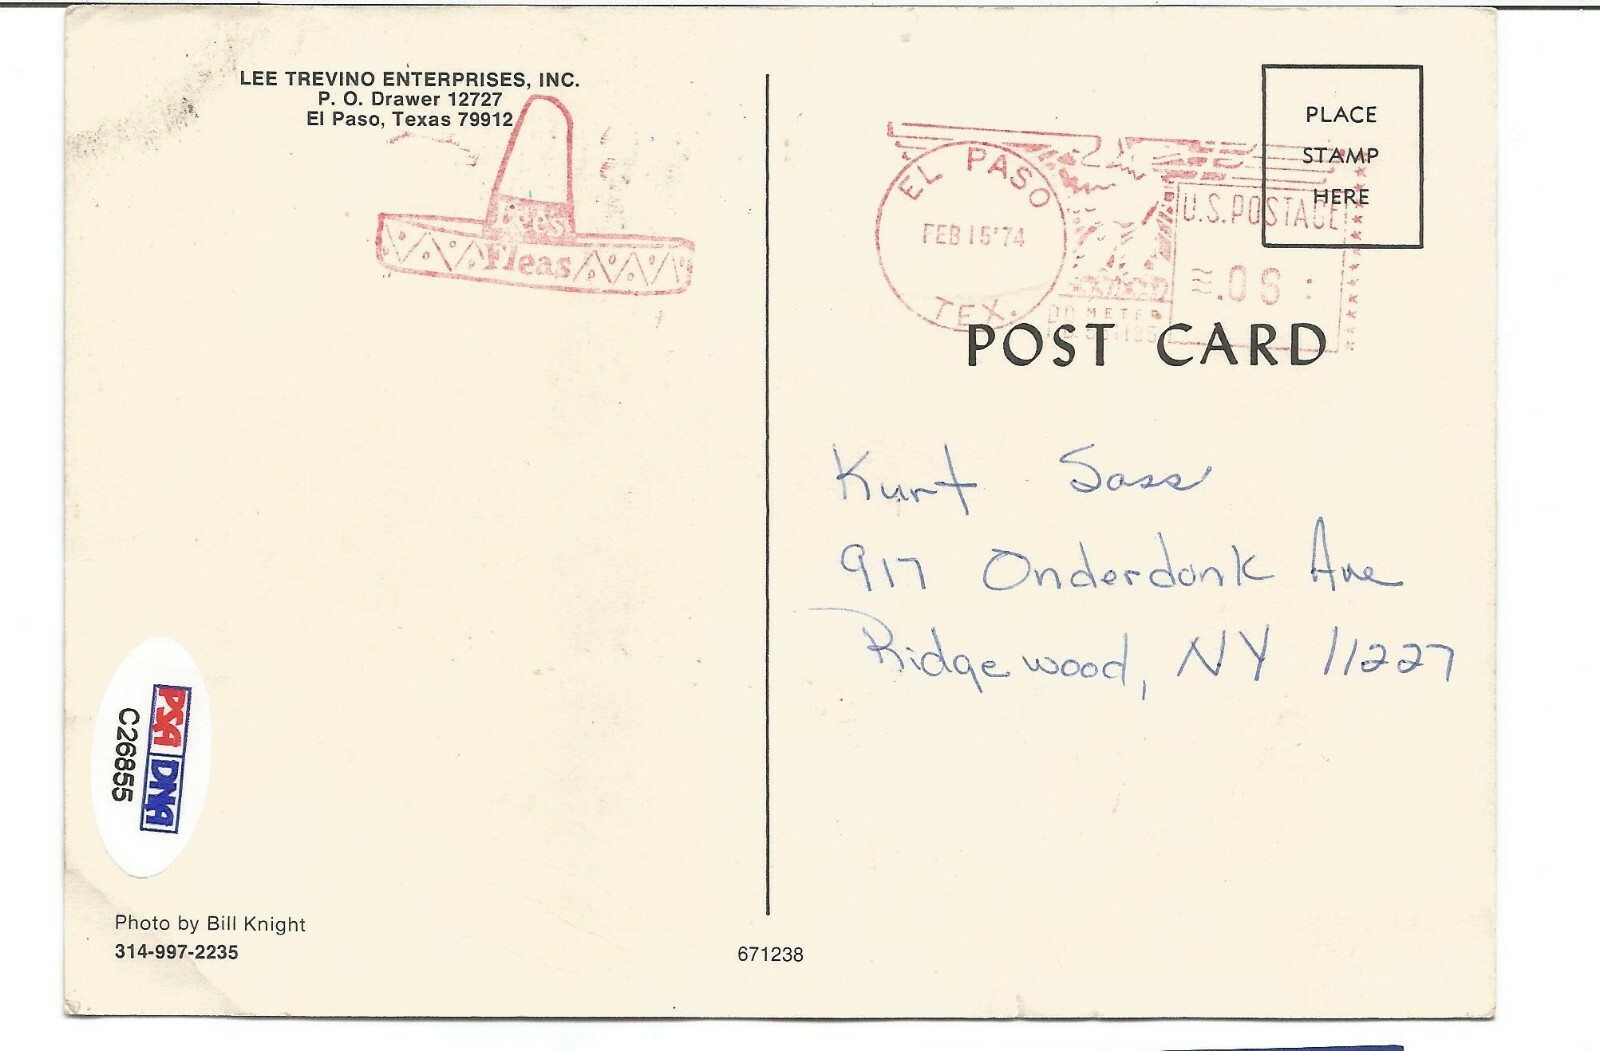 LEE TREVINO ENTERPRISES, INC.
P. O. Drawer 12727
El Paso, Texas 79912
Lee's
Fleas
EL PASO
FEB 15 '74
TEX.
U.S. POSTAGE
.08
METER
PLACE
STAMP
HERE
POST CARD
Kurt Sass
917 Onderdonk Ave
Ridgewood, NY 11227
PSA DNA
C26855
Photo by Bill Knight
314-997-2235
671238